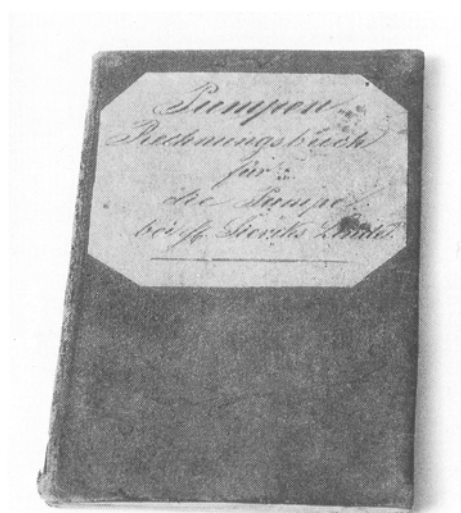 Pumpen
Rechnungsbuch
für
die Pumpe
bei